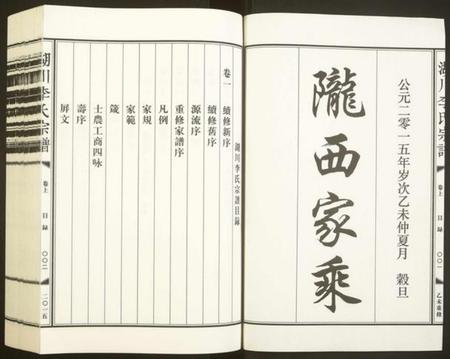 湖川李氏宗譜
公元二零一五年岁次乙未仲夏月 穀旦
隴西家乘
卷上
目録
００一
乙未重修
湖川李氏宗譜目録
卷一
續修新序
續修舊序
源流序
重修家譜序
凡例
家規
家範
箴
士農工商四咏
壽序
屏文
湖川李氏宗譜
卷上
目録
００二
二０一五